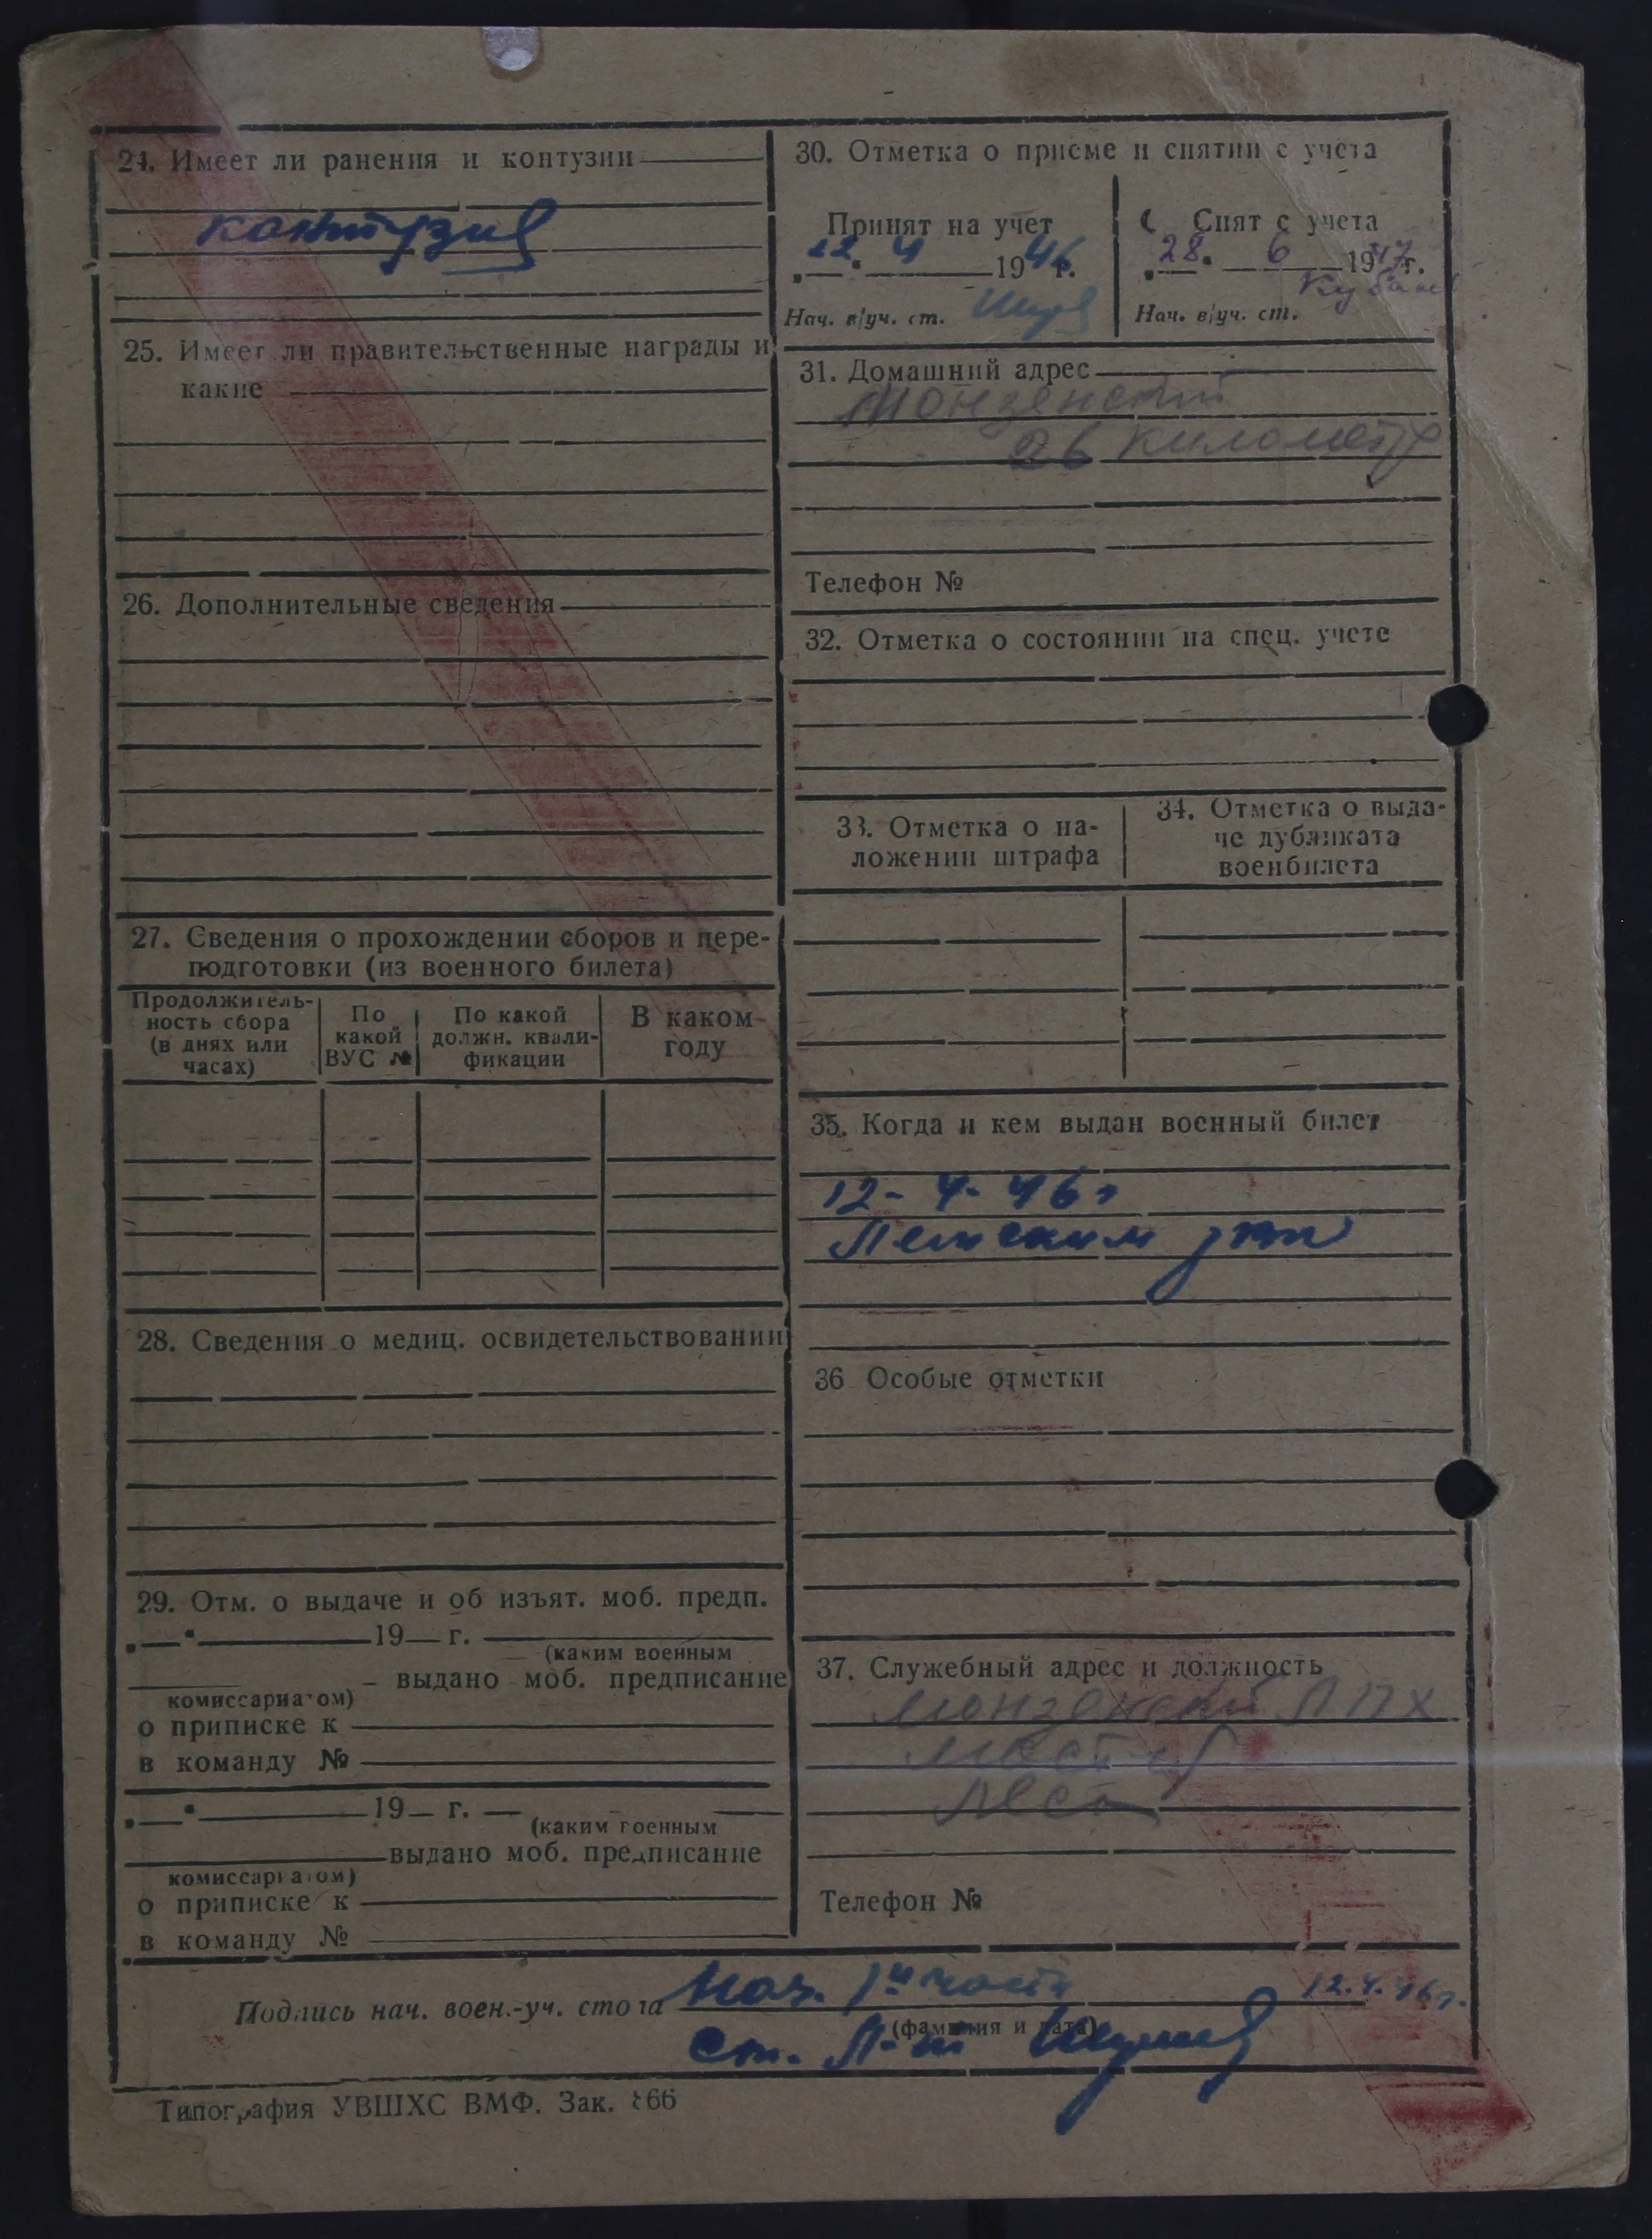 24. Имеет ли ранения и контузии
контузия
25. Имеет ли правительственные награды и
какие
26. Дополнительные сведения
27. Сведения о прохождении сборов и пере-
подготовки (из военного билета)
Продолжитель-
ность сбора
(в днях или
часах)
По
какой
ВУС №
По какой
должн. квали-
фикации
В каком
году
28. Сведения о медиц. освидетельствовании
29. Отм. о выдаче и об изъят. моб. предп.
19 г.
(каким военным
выдано моб. предписание
комиссариатом)
о приписке к
в команду №
19 г.
(каким военным
выдано моб. предписание
комиссариатом)
о приписке к
в команду №
30. Отметка о приеме и снятии с учета
Принят на учет
12. 4 1946 г.
Нач. в/уч. ст.
Снят с учета
28. 6 1947 г.
Нач. в/уч. ст.
31. Домашний адрес
Монзенский
26 километр
Телефон №
32. Отметка о состоянии на спец. учете
33. Отметка о на-
ложении штрафа
34. Отметка о выда-
че дубликата
военбилета
35. Когда и кем выдан военный билет
12- 4- 46 г
36 Особые отметки
37. Служебный адрес и должность
Монзенский ЛПХ
мастер
Телефон №
Подпись нач. воен.-уч. стола Нач. 1й части 12.4.46 г.
(фамилия и дата)
ст. Л-т
Типография УВШХС ВМФ. Зак. 866